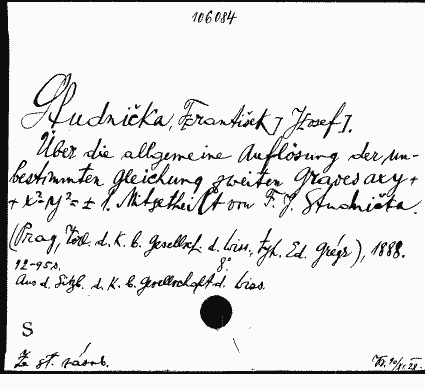 106084
Studnička, František J[osef].
Über die allgemeine Auflösung der un-
bestimmten Gleichung zweiten Grades axy +
+ x² - y² = ± 1. Mitgetheilt von F. J. Studnička.
(Prag, Verl. d. K. b. Gesellsch. d. Wiss., typ. Ed. Grégr), 1888.
92-95 s. 8°
Aus d. Sitzb. d. K. b. Gesellschaft d. Wiss.
S
Ze st. zásob.